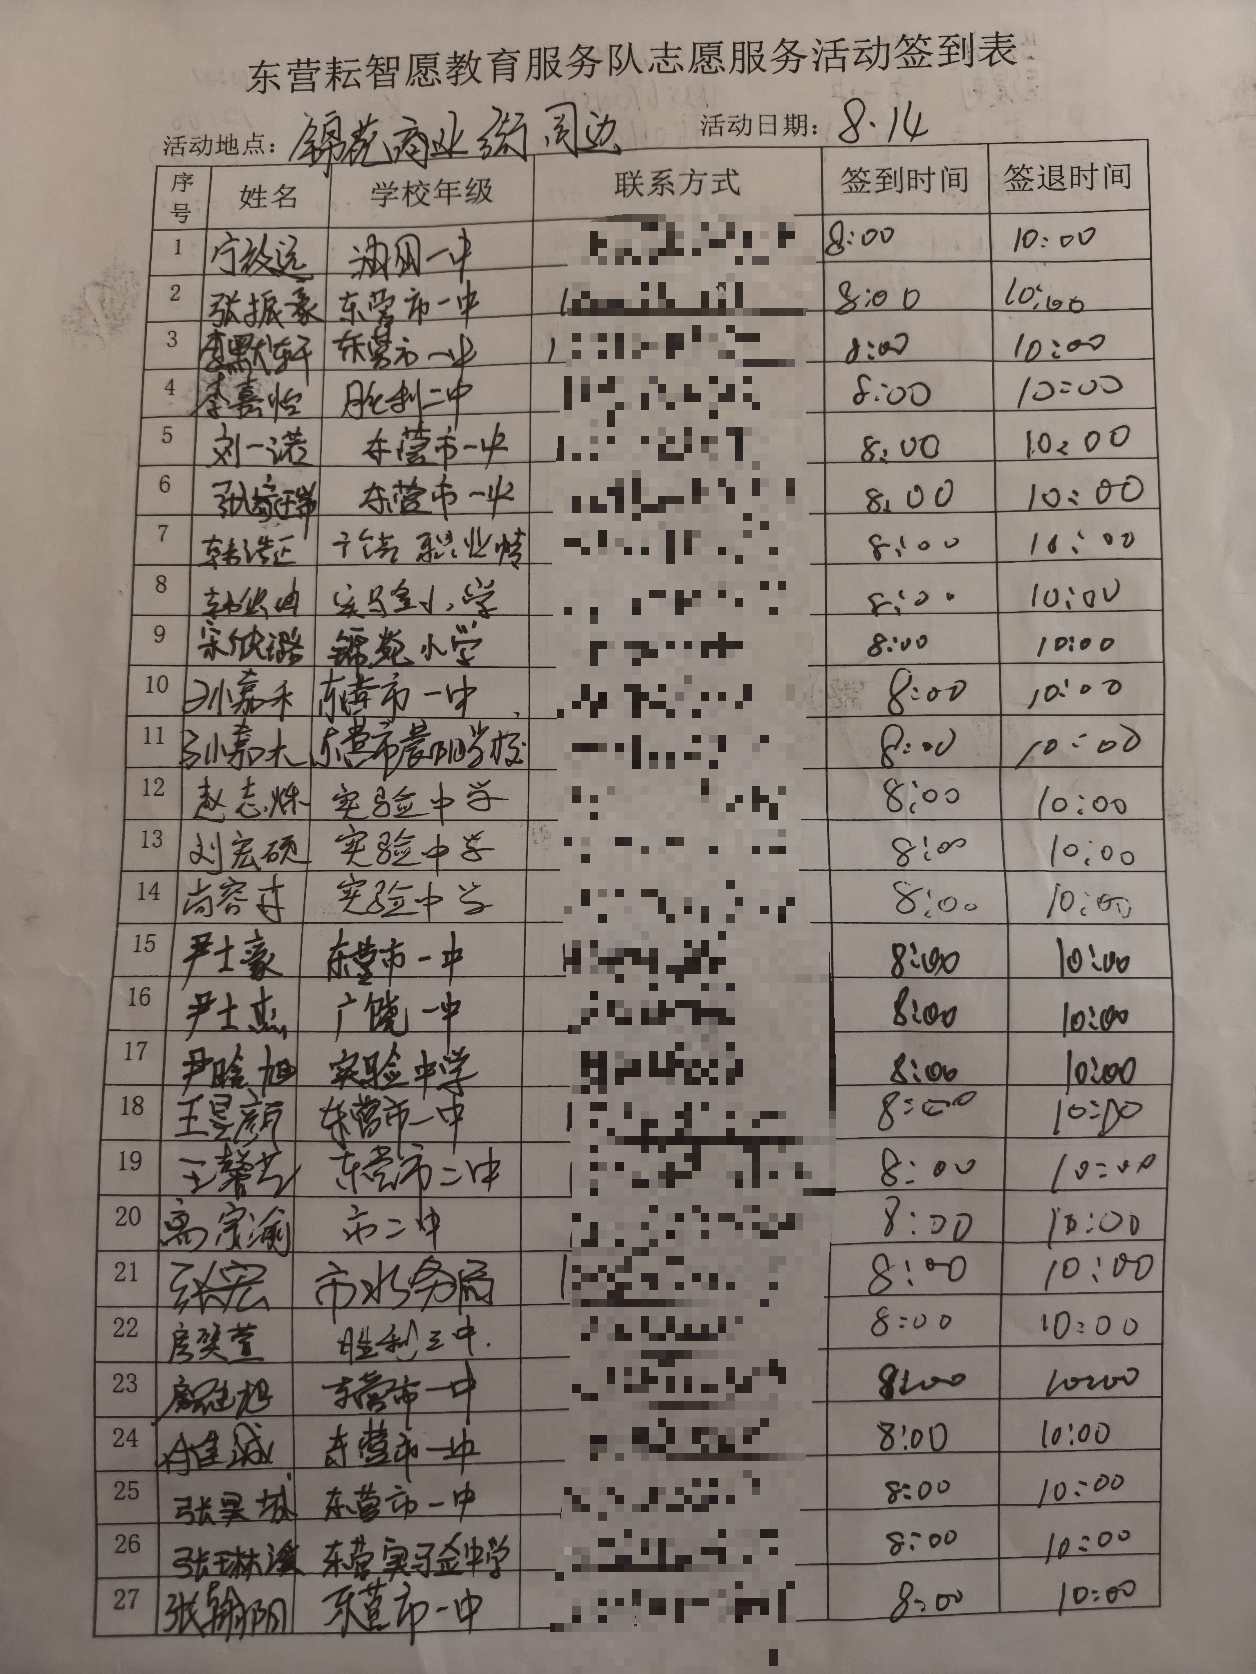 东营耘智愿教育服务队志愿服务活动签到表
活动地点：锦苑商业街周边 活动日期：8.14
序号 姓名 学校年级 联系方式 签到时间 签退时间
1 宁致远 一中 8:00 10:00
2 张振豪 东营市一中 8:00 10:00
3 李默轩 东营市一中 8:00 10:00
4 李嘉怡 胜利二中 8:00 10:00
5 刘一诺 东营市一中 8:00 10:00
6 东营市一中 8:00 10:00
7 韩浩正 职业 8:00 10:00
8 实验小学 8:00 10:00
9 宋欣潞 锦苑小学 8:00 10:00
10 孙嘉禾 东营市一中 8:00 10:00
11 孙嘉木 东营市晨阳学校 8:00 10:00
12 赵志烁 实验中学 8:00 10:00
13 刘宏硕 实验中学 8:00 10:00
14 尚容 实验中学 8:00 10:00
15 尹士豪 东营市一中 8:00 10:00
16 尹士杰 广饶一中 8:00 10:00
17 尹晗旭 实验中学 8:00 10:00
18 王昱颜 东营市一中 8:00 10:00
19 王馨艺 东营市二中 8:00 10:00
20 高宗渝 市二中 8:00 10:00
21 张宏 市水务局 8:00 10:00
22 房奕萱 胜利三中. 8:00 10:00
23 东营市一中 8:00 10:00
24 东营市一中 8:00 10:00
25 张昊城 东营市一中 8:00 10:00
26 张琳溪 东营实验中学 8:00 10:00
27 张翰阳 东营市一中 8:00 10:00